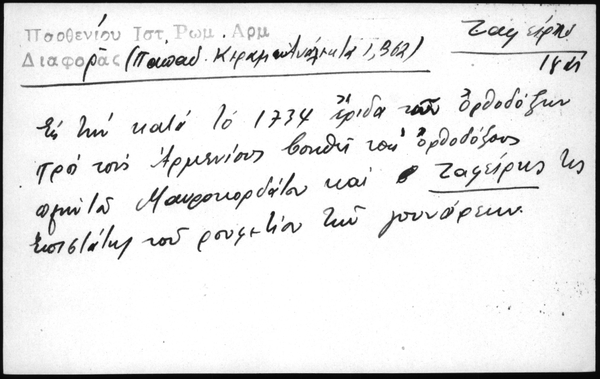 Παρθενίου Ιστ. Ρωμ. Αρμ
Διαφορᾶς (Παπαδ. Κεραμ. Ἀνάλεκτα 1, 362)
Ζαφείρης
Εἰς τήν κατά τό 1734 ἔριδα τῶν Ὀρθοδόξων
πρός τούς Ἀρμενίους βοηθεῖ τούς ὀρθοδόξους
Μαυροκορδάτου καί ὁ Ζαφείρης
ἐπιστάτης τοῦ ρουφετίου τῶν γουνάρεων.